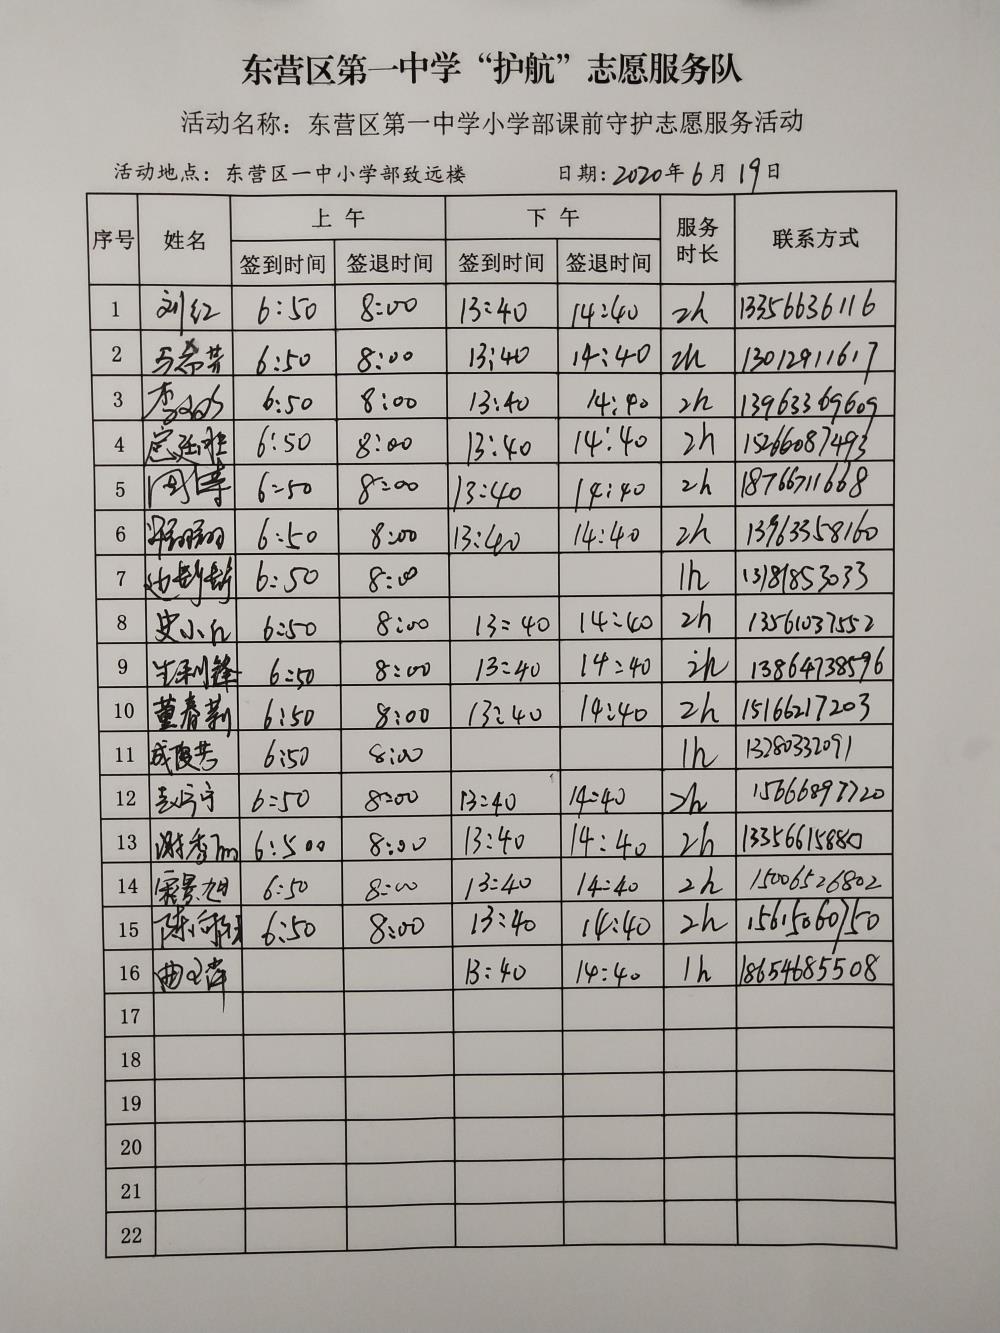 东营区第一中学“护航”志愿服务队
活动名称：东营区第一中学小学部课前守护志愿服务活动
活动地点：东营区一中小学部致远楼 日期：2020年6月19日
序号 姓名 上午 下午 服务时长 联系方式
签到时间 签退时间 签到时间 签退时间
1 刘红 6:50 8:00 13:40 14:40 2h 13356636116
2 6:50 8:00 13:40 14:40 2h 13012911617
3 6:50 8:00 13:40 14:40 2h 13963369609
4 6:50 8:00 13:40 14:40 2h 15266087493
5 周涛 6:50 8:00 13:40 14:40 2h 18766711668
6 6:50 8:00 13:40 14:40 2h 13963358160
7 6:50 8:00 1h 13181853033
8 史小红 6:50 8:00 13:40 14:40 2h 13561037552
9 生利锋 6:50 8:00 13:40 14:40 2h 13864738596
10 董春莉 6:50 8:00 13:40 14:40 2h 15166217203
11 成俊芳 6:50 8:00 1h 13280332091
12 赵宁宁 6:50 8:00 13:40 14:40 2h
13 谢秀丽 6:500 8:00 13:40 14:40 2h 13356615880
14 景旭 6:50 8:00 13:40 14:40 2h 15006526802
15 陈 6:50 8:00 13:40 14:40 2h 15615060750
16 曲 13:40 14:40 1h 18654685508
17
18
19
20
21
22